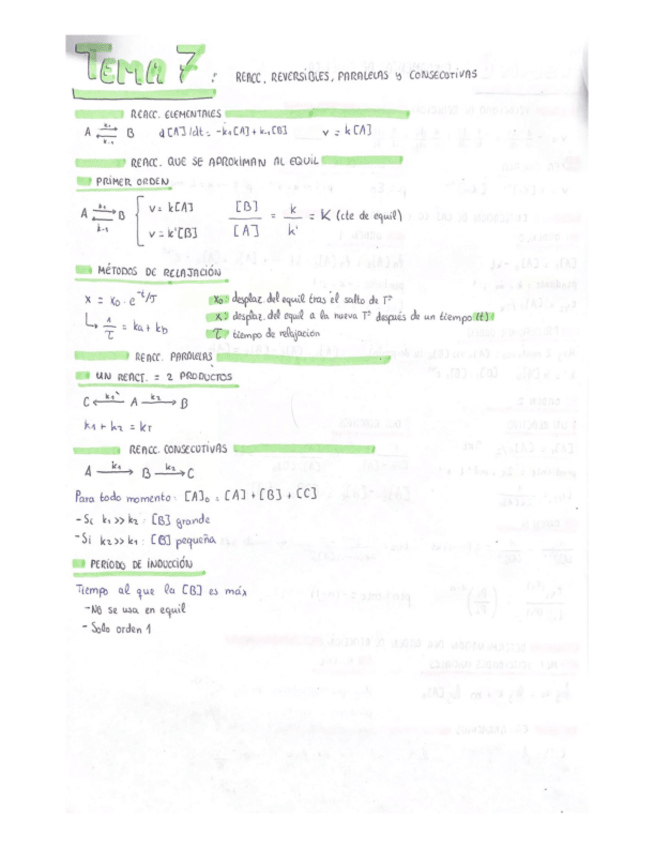 TEMA 7: REACC. REVERSIBLES, PARALELAS y CONSECUTIVAS
REACC. ELEMENTALES
A ⇌ B d[A]/dt = -k₁[A] + k₋₁[B] v = k[A]
REACC. QUE SE APROXIMAN AL EQUIL
PRIMER ORDEN
A ⇌ B v = k[A] [B]/[A] = k/k' = K (cte de equil)
k₁ k₋₁ v = k'[B]
MÉTODOS DE RELAJACIÓN
x = x₀ · e^(-t/τ) x₀: desplaz. del equil tras el salto de Tª
1/τ = ka + kb x: desplaz. del equil a la nueva Tª después de un tiempo (t)
τ: tiempo de relajación
REACC. PARALELAS
UN REACT. = 2 PRODUCTOS
C ←k₁ A k₂→ B
k₁ + k₂ = kT
REACC. CONSECUTIVAS
A k₁→ B k₂→ C
Para todo momento: [A]₀ = [A] + [B] + [C]
- Si k₁ >> k₂ : [B] grande
- Si k₂ >> k₁ : [B] pequeña
PERÍODO DE INDUCCIÓN
Tiempo al que la [B] es máx
- No se usa en equil
- Solo orden 1